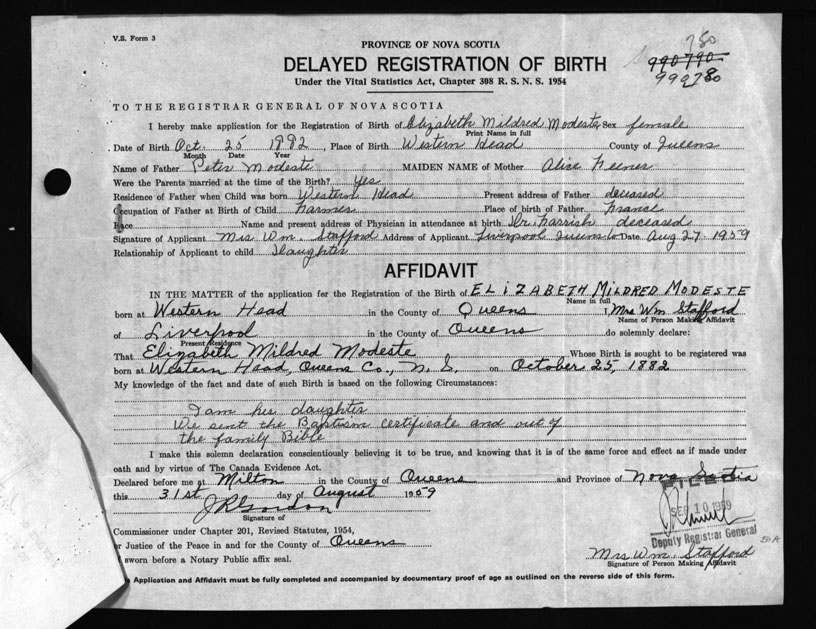 V.S. Form 3
PROVINCE OF NOVA SCOTIA
DELAYED REGISTRATION OF BIRTH
Under the Vital Statistics Act, Chapter 308 R. S. N. S. 1954
780
990790
999780
TO THE REGISTRAR GENERAL OF NOVA SCOTIA
I hereby make application for the Registration of Birth of Elizabeth Mildred Modeste Sex female
Print Name in full
Date of Birth Oct. 25 1882, Place of Birth Western Head County of Queens
Month Date Year
Name of Father Peter Modeste MAIDEN NAME of Mother Alice
Were the Parents married at the time of the Birth? Yes
Residence of Father when Child was born Western Head Present address of Father deceased
Occupation of Father at Birth of Child Farmer Place of birth of Father France
Race Name and present address of Physician in attendance at birth Dr. Farrish deceased
Signature of Applicant Mrs Wm. Stafford Address of Applicant Liverpool Queens Co Date Aug 27 1959
Relationship of Applicant to child Daughter
AFFIDAVIT
IN THE MATTER of the application for the Registration of the Birth of ELIZABETH MILDRED MODESTE
Name in full
born at Western Head in the County of Queens I, Mrs Wm Stafford
Name of Person Making Affidavit
of Liverpool in the County of Queens do solemnly declare:
Present Residence
That Elizabeth Mildred Modeste Whose Birth is sought to be registered was
born at Western Head, Queens Co., N. S. on October 25, 1882
My knowledge of the fact and date of such Birth is based on the following Circumstances:
I am his daughter
We sent the Baptism certificate and out of
the family Bible
I make this solemn declaration conscientiously believing it to be true, and knowing that it is of the same force and effect as if made under
oath and by virtue of The Canada Evidence Act.
Declared before me at Milton in the County of Queens and Province of Nova Scotia
this 31st day of August 1959
SEP 10 1959
Signature of
Deputy Registrar General
Commissioner under Chapter 201, Revised Statutes, 1954,
or Justice of the Peace in and for the County of Queens
sworn before a Notary Public affix seal.
Mrs Wm. Stafford
Signature of Person Making Affidavit
Application and Affidavit must be fully completed and accompanied by documentary proof of age as outlined on the reverse side of this form.